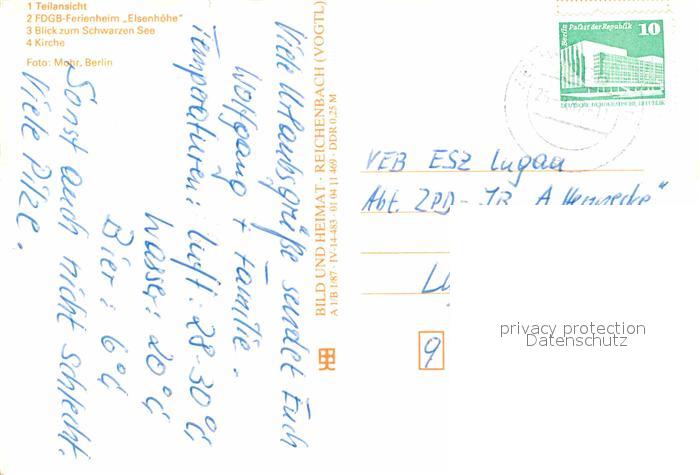 1 Teilansicht
2 FDGB-Ferienheim „Elsenhöhe"
3 Blick zum Schwarzen See
4 Kirche
Foto: Mohr, Berlin
Viele Urlaubsgrüße sendet Euch
Wolfgang + Familie.
Temperaturen: Luft: 28-30°C
Wasser: 20°C
Bier: 6°C
Sonst auch nicht schlecht.
Viele Pilze.
BILD UND HEIMAT · REICHENBACH (VOGTL)
A 1/B 1/87 · IV-14-483 · 01 04 11 469 · DDR 0,25 M
Berlin Palast der Republik 10
DEUTSCHE DEMOKRATISCHE REPUBLIK
VEB ESZ Lugau
Abt. ZPD - JB "A. Hennecke"
9
privacy protection
Datenschutz